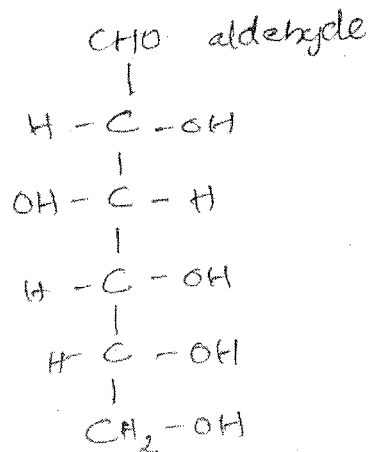 CHO aldehyde
H - C - OH
OH - C - H
H - C - OH
H - C - OH
CH₂ - OH